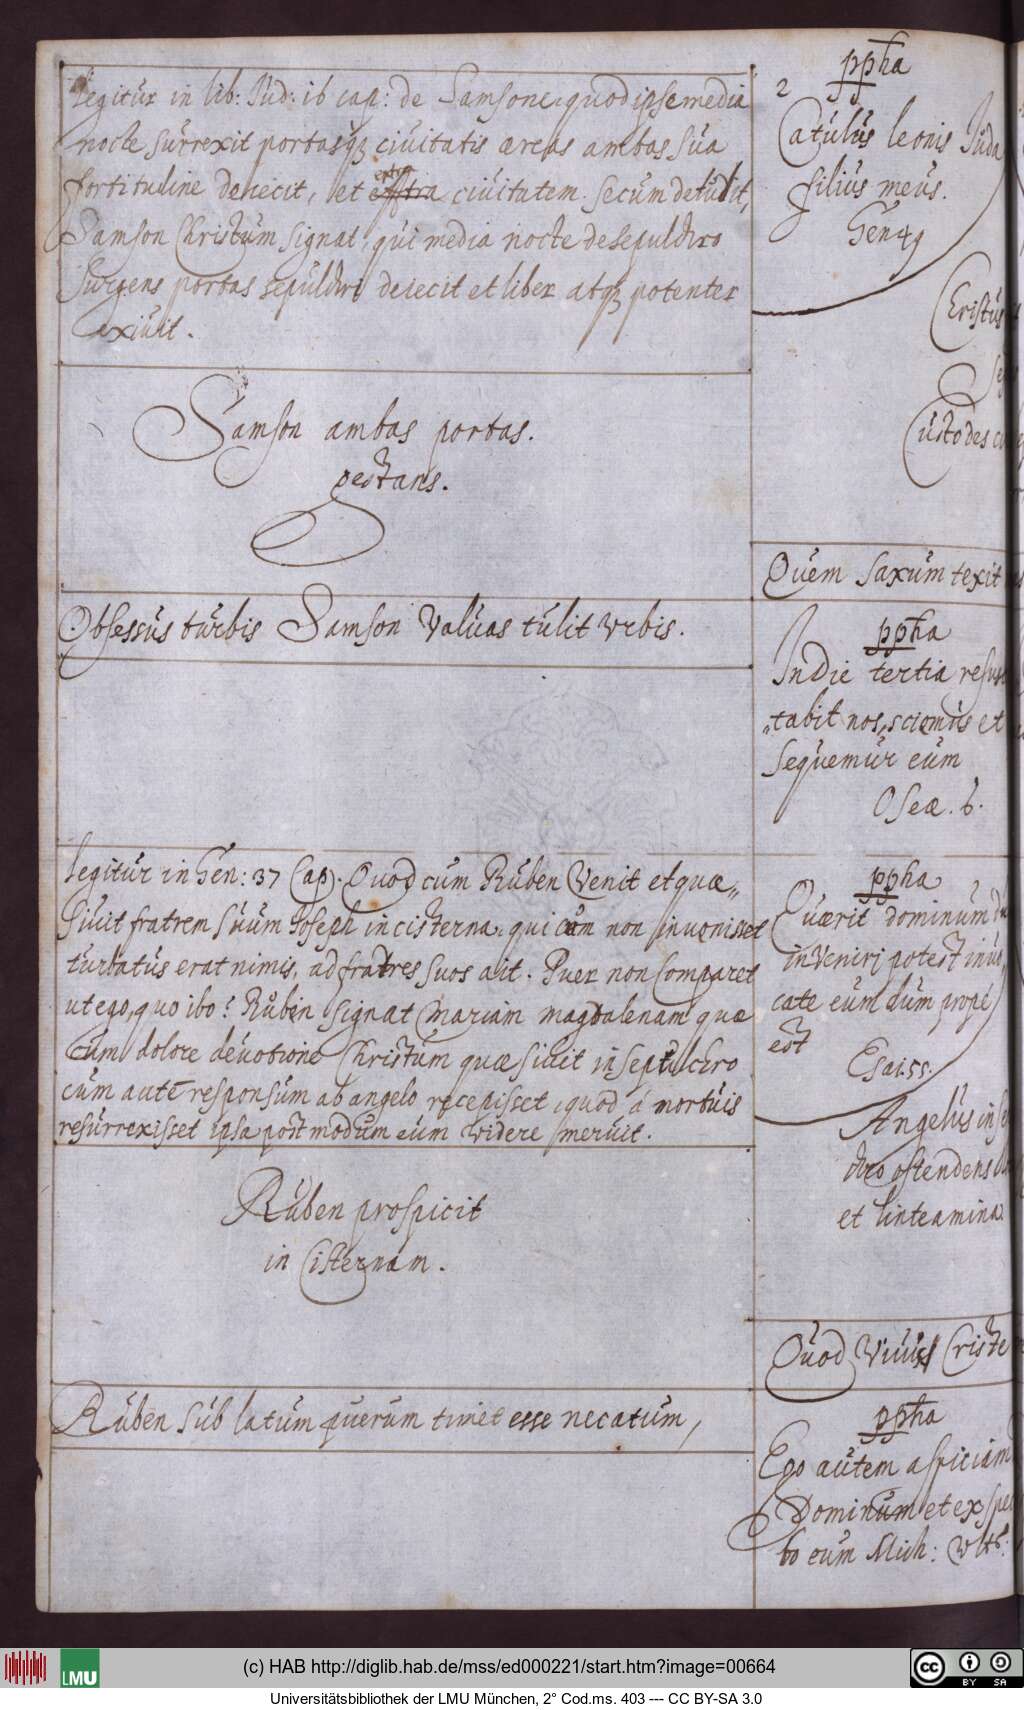 Legitur in lib: Jud: 16 cap: de Samsone, quod ipse media
nocte surrexit portasq3 ciuitatis æreas ambas sua
fortitudine deiecit, et extra ciuitatem secum detulit,
Samson Christum signat, qui media nocte de sepulchro
surgens portas sepulchri deiecit et liber atq3 potenter
exiuit.
Samson ambas portas.
portans.
Obsessus turbis Samson Valuas tulit Vrbis.
Legitur in Gen: 37 Cap. Quod cum Ruben Venit et quæ„
siuit fratrem suum Joseph in cisterna, qui cum non inuenisset
turbatus erat nimis, ad fratres suos ait. Puer non Comparet
ut ego, quo ibo? Ruben signat Mariam magdalenam quæ
cum dolore deuotione Christum quæsiuit in sepulchro
cum autē responsum ab angelo recepisset, quod á mortuis
resurrexisset ipsa postmodum eum Videre meruit.
Ruben prospicit
in Cisternam.
Ruben sub latum puerum timet esse necatum,
2
ppha
Catulus leonis Juda
filius meus.
Gen 49
Cristus
Custodes
Quem saxum texit
ppha
In die tertia resus
„tabit nos, sciemus et
sequemur eum
Oseæ. 6.
ppha
Quærit dominum du
inVenirj potest inuo
cate eum dum propé
est
Esai 55.
Angelus in se
chro ostendens
et linteamina
Quod Viuis Criste
ppha
Ego autem aspiciam
Dominum et exspec
bo eum Mich: Vlt:
(c) HAB http://diglib.hab.de/mss/ed000221/start.htm?image=00664
LMU
cc BY SA
Universitätsbibliothek der LMU München, 2° Cod.ms. 403 --- CC BY-SA 3.0